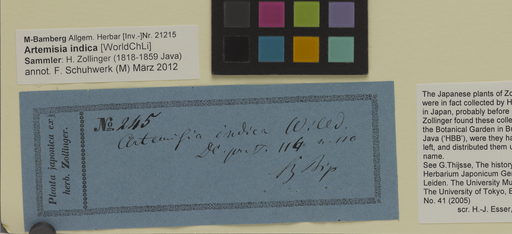 M-Bamberg Allgem. Herbar [Inv.-]Nr. 21215
Artemisia indica [WorldChLi]
Sammler: H. Zollinger (1818-1859 Java)
annot. F. Schuhwerk (M) März 2012
Planta japonica ex
herb. Zollinger.
No. 245
Artemisia indica Willd.
DC pr. 114 n. 110
The Japanese plants of Zo
were in fact collected by H
in Japan, probably before
Zollinger found these collec
the Botanical Garden in B
Java ('HBB'), were they ha
left, and distributed them u
name.
See G.Thijsse, The history
Herbarium Japonicum Ge
Leiden. The University Mu
The University of Tokyo, B
No. 41 (2005)
scr. H.-J. Esser,